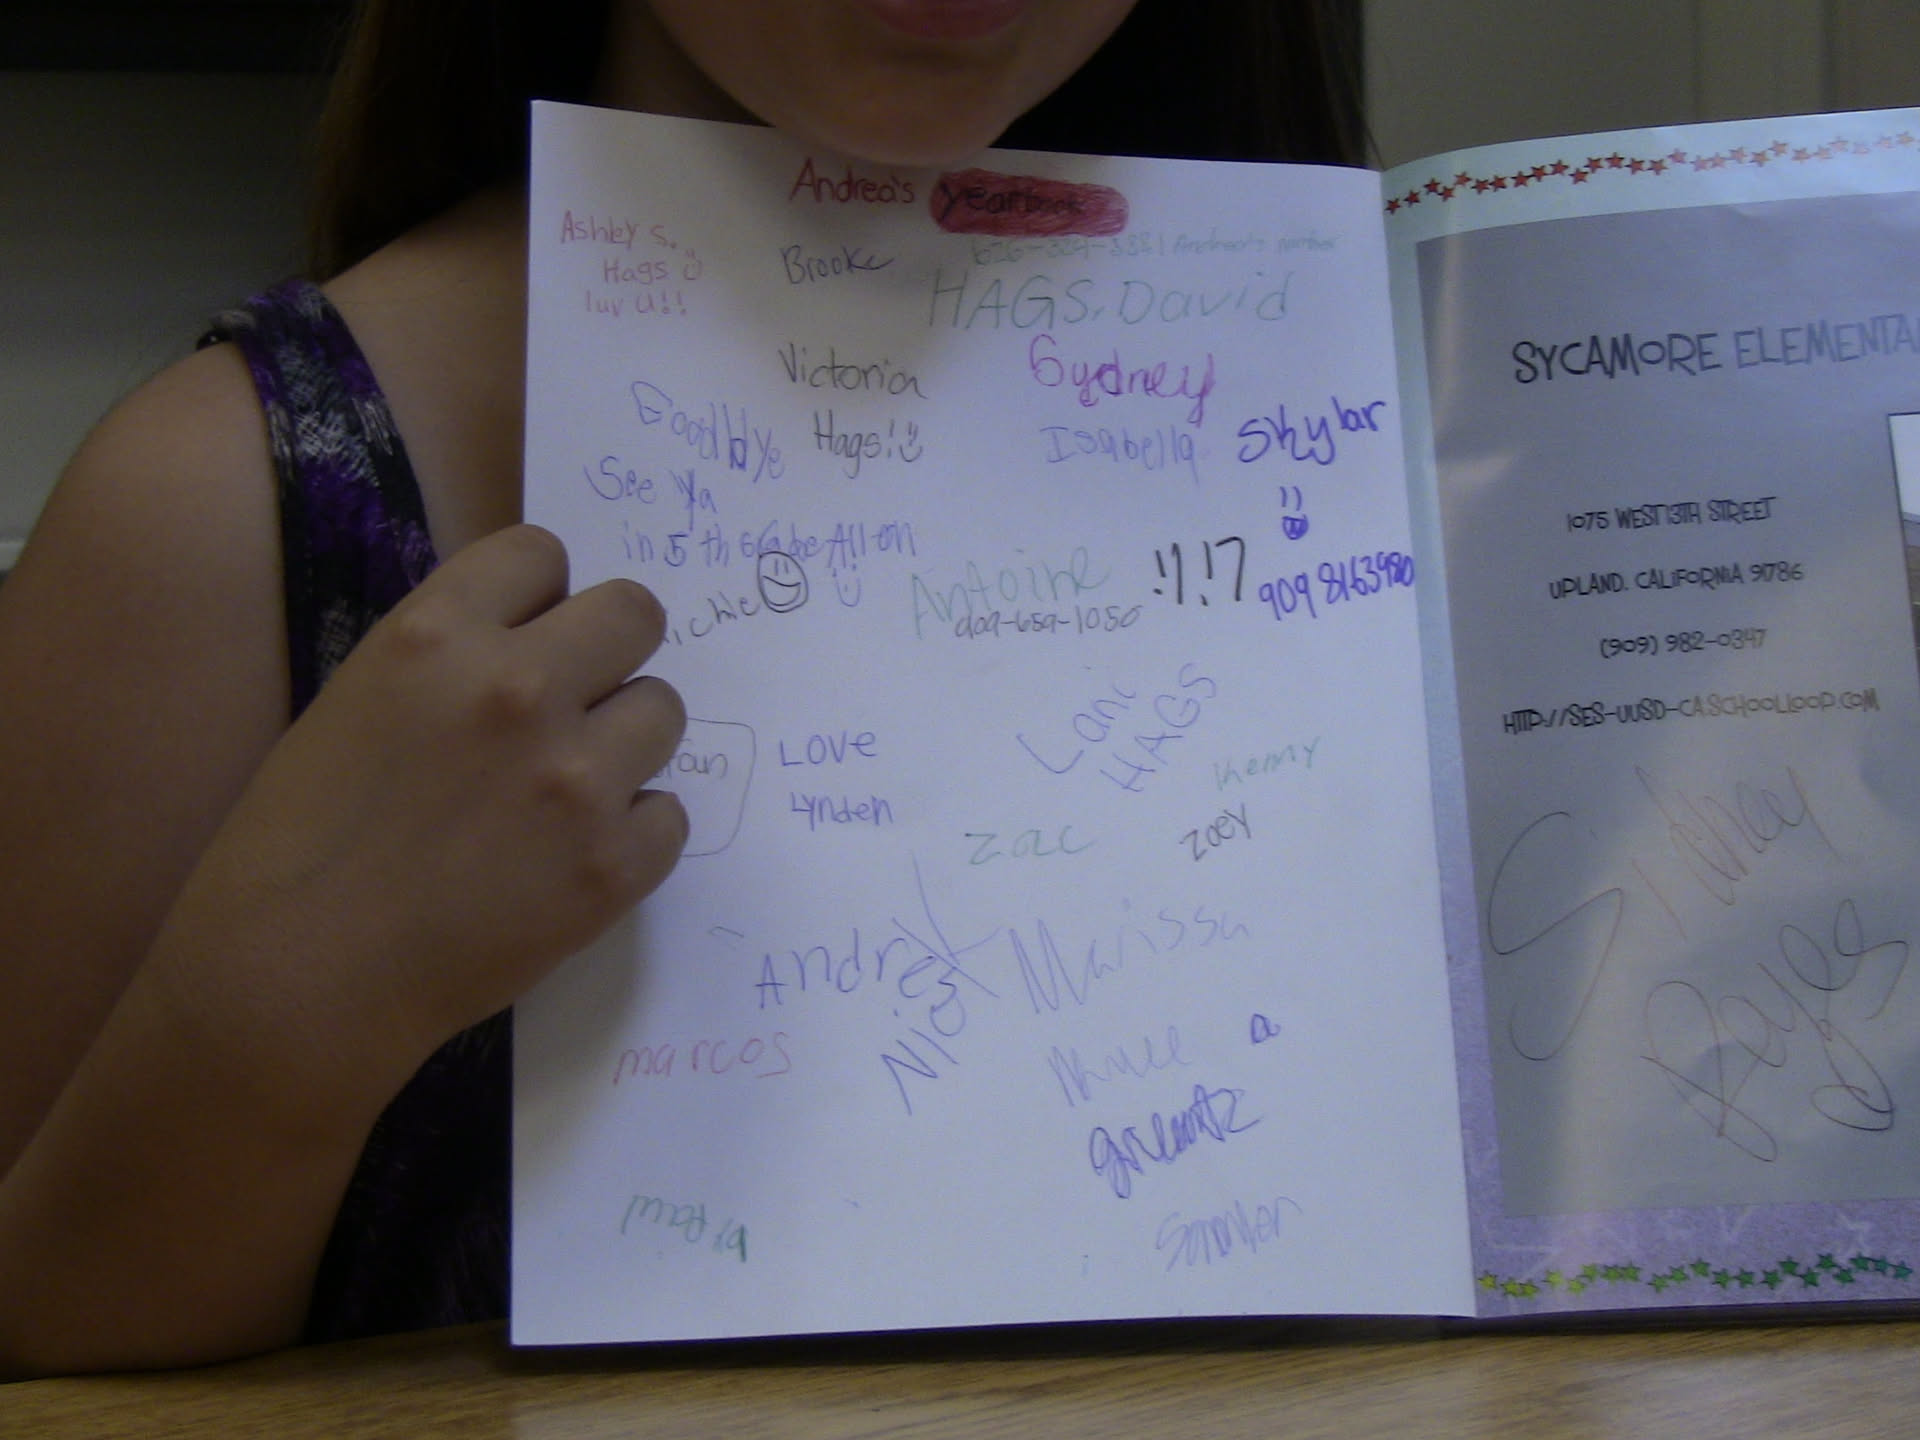 Andrea's yearbook
Ashley S.
Hags
luv U!!
Brooke
Andrea's number
HAGS, David
Victoria
Hags!
Sydney
Goodbye
See Ya
in 5th
Isabella
Skylar
909 8163980
Antoine
909-659-1050
!!!7
LOVE
Lynden
Lani
HAGS
Kenny
Zac
zoey
Andrea
Nick
Marissa
marcos
a
by Raul
SYCAMORE ELEMENTA
1075 WEST 13TH STREET
UPLAND, CALIFORNIA 91786
(909) 982-0347
HTTP://SES-UUSD-CA.SCHOOLLOOP.COM
Sidney
Rayes